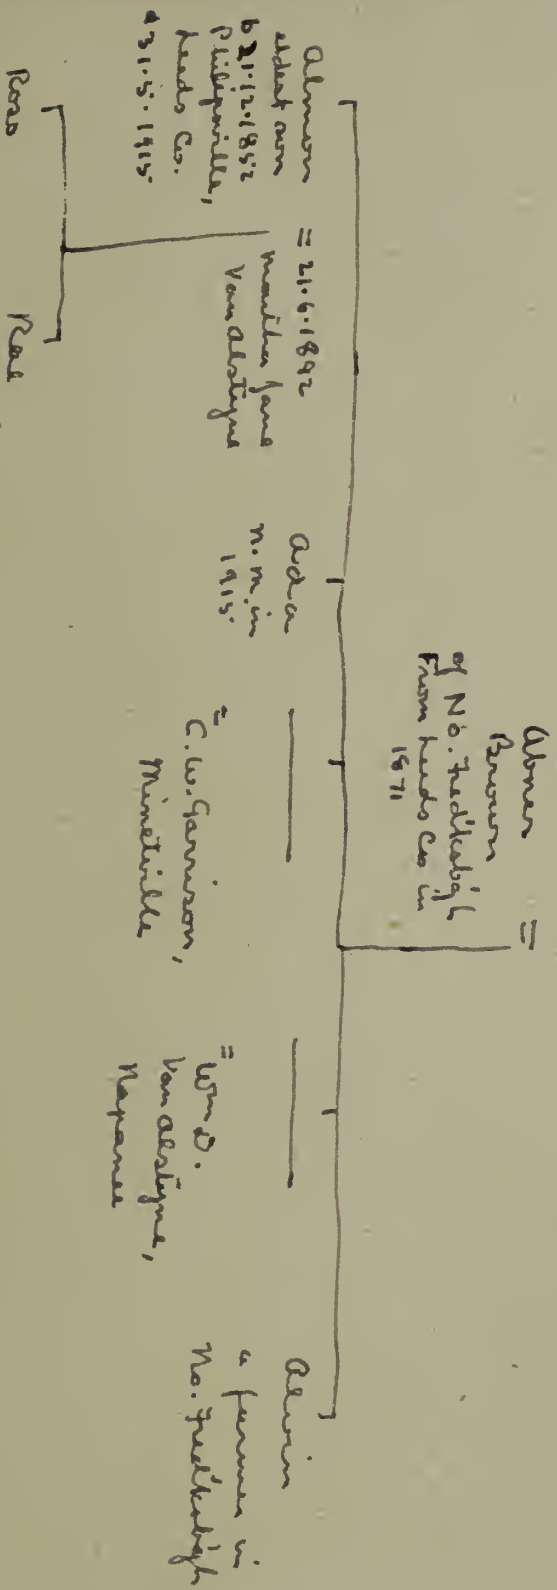 Abner =
Brown
of No. Fred'ksb'gh
From Leeds Co in
1871
Almon
eldest son
b 21.12.1852
Philipsville,
Leeds Co.
d 31.5.1915
= 21.6.1892
Martha Jane
Van Alstyne
Ada
n.m. in
1915
=
C.W. Garrison,
Minetville
=
Wm D.
Van Alstyne,
Napanee
Alvin
a farmer in
No. Fred'ksb'gh
Ross
Rae